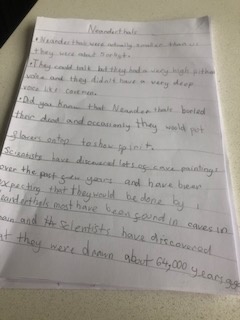 Neanderthals
• Neanderthals were actually smaller than us
they were about
• They could talk but they had a very high pitched
voice and they didn't have a very deep
voice like cavemen.
• Did you know that Neanderthals buried
their dead and occasionly they would put
flowers on top to show spirit.
Scientists have discovered lots of cave paintings
over the past few years and have been
expecting that they would be done by
eanderthals most have been found in caves in
pain and the scientists have discovered
at they were drawn about 64,000 years ago